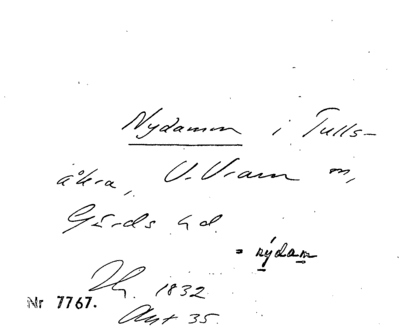 Nydamm i Tulls-
åkra, V. Vram m,
Gärds hd.
= nýdam
1832
Nr 7767. Akt 35.